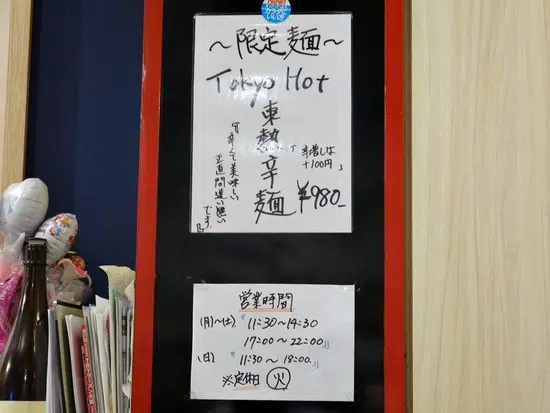 ～限定麺～
Tokyo Hot
東熱辛麺
辛増しは
+100円
¥980-
旨辛くて美味しい
正直間違い無い
です。
営業時間
(月)～(土) 11:30～14:30
17:00～22:00
(日) 11:30～18:00
※定休日 (火)